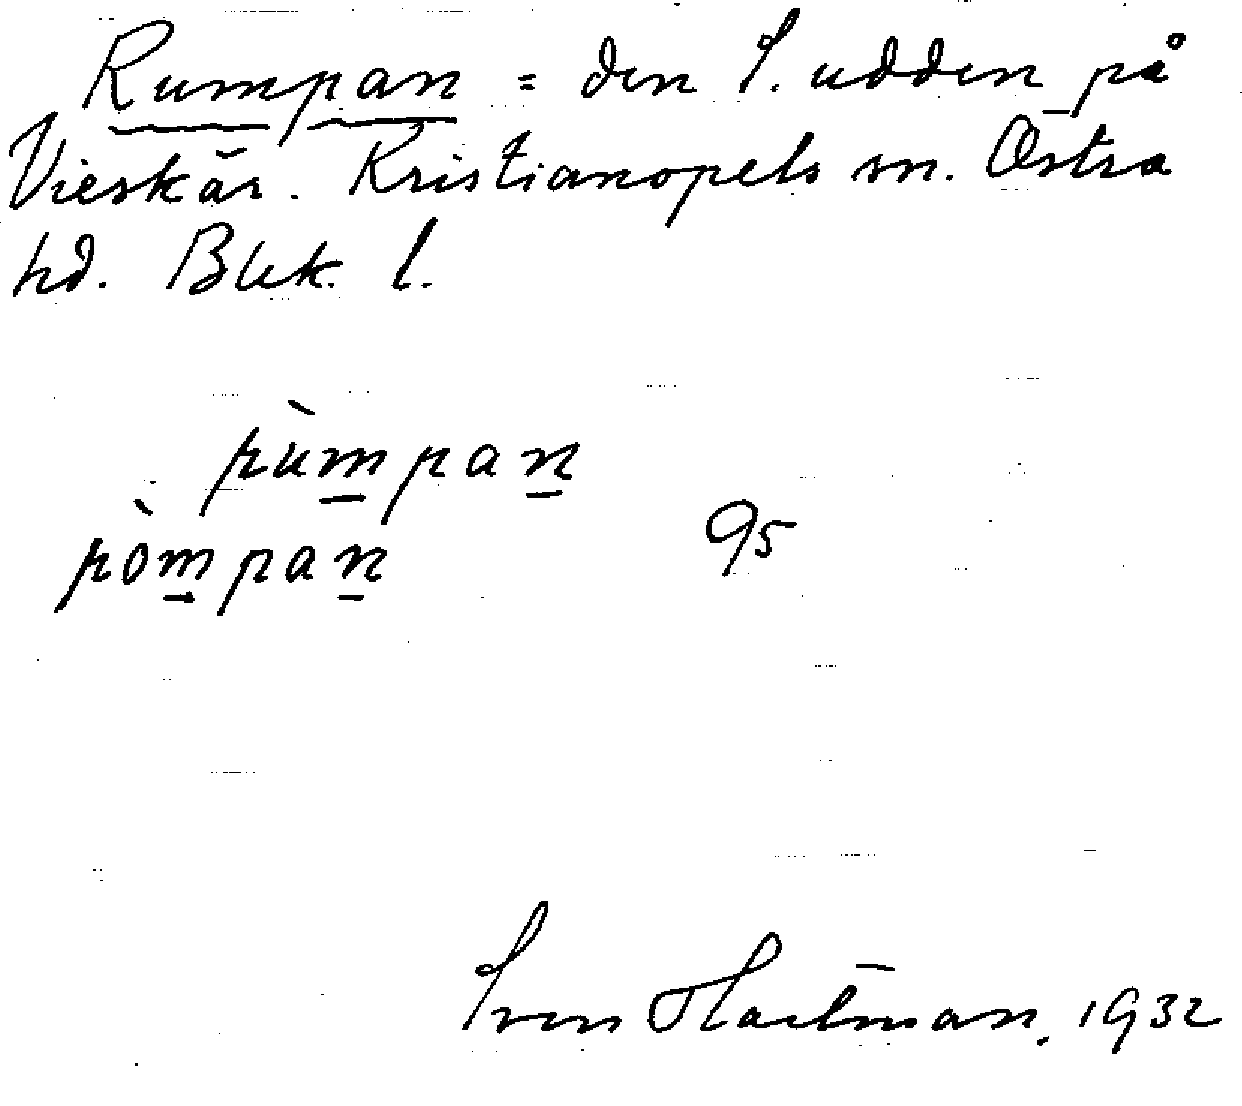 Rumpan = den S. udden på
Vieskär. Kristianopels sn. Östra
hd. Blek. l.
rùmpan
ròmpan
95
Sven Hartman. 1932